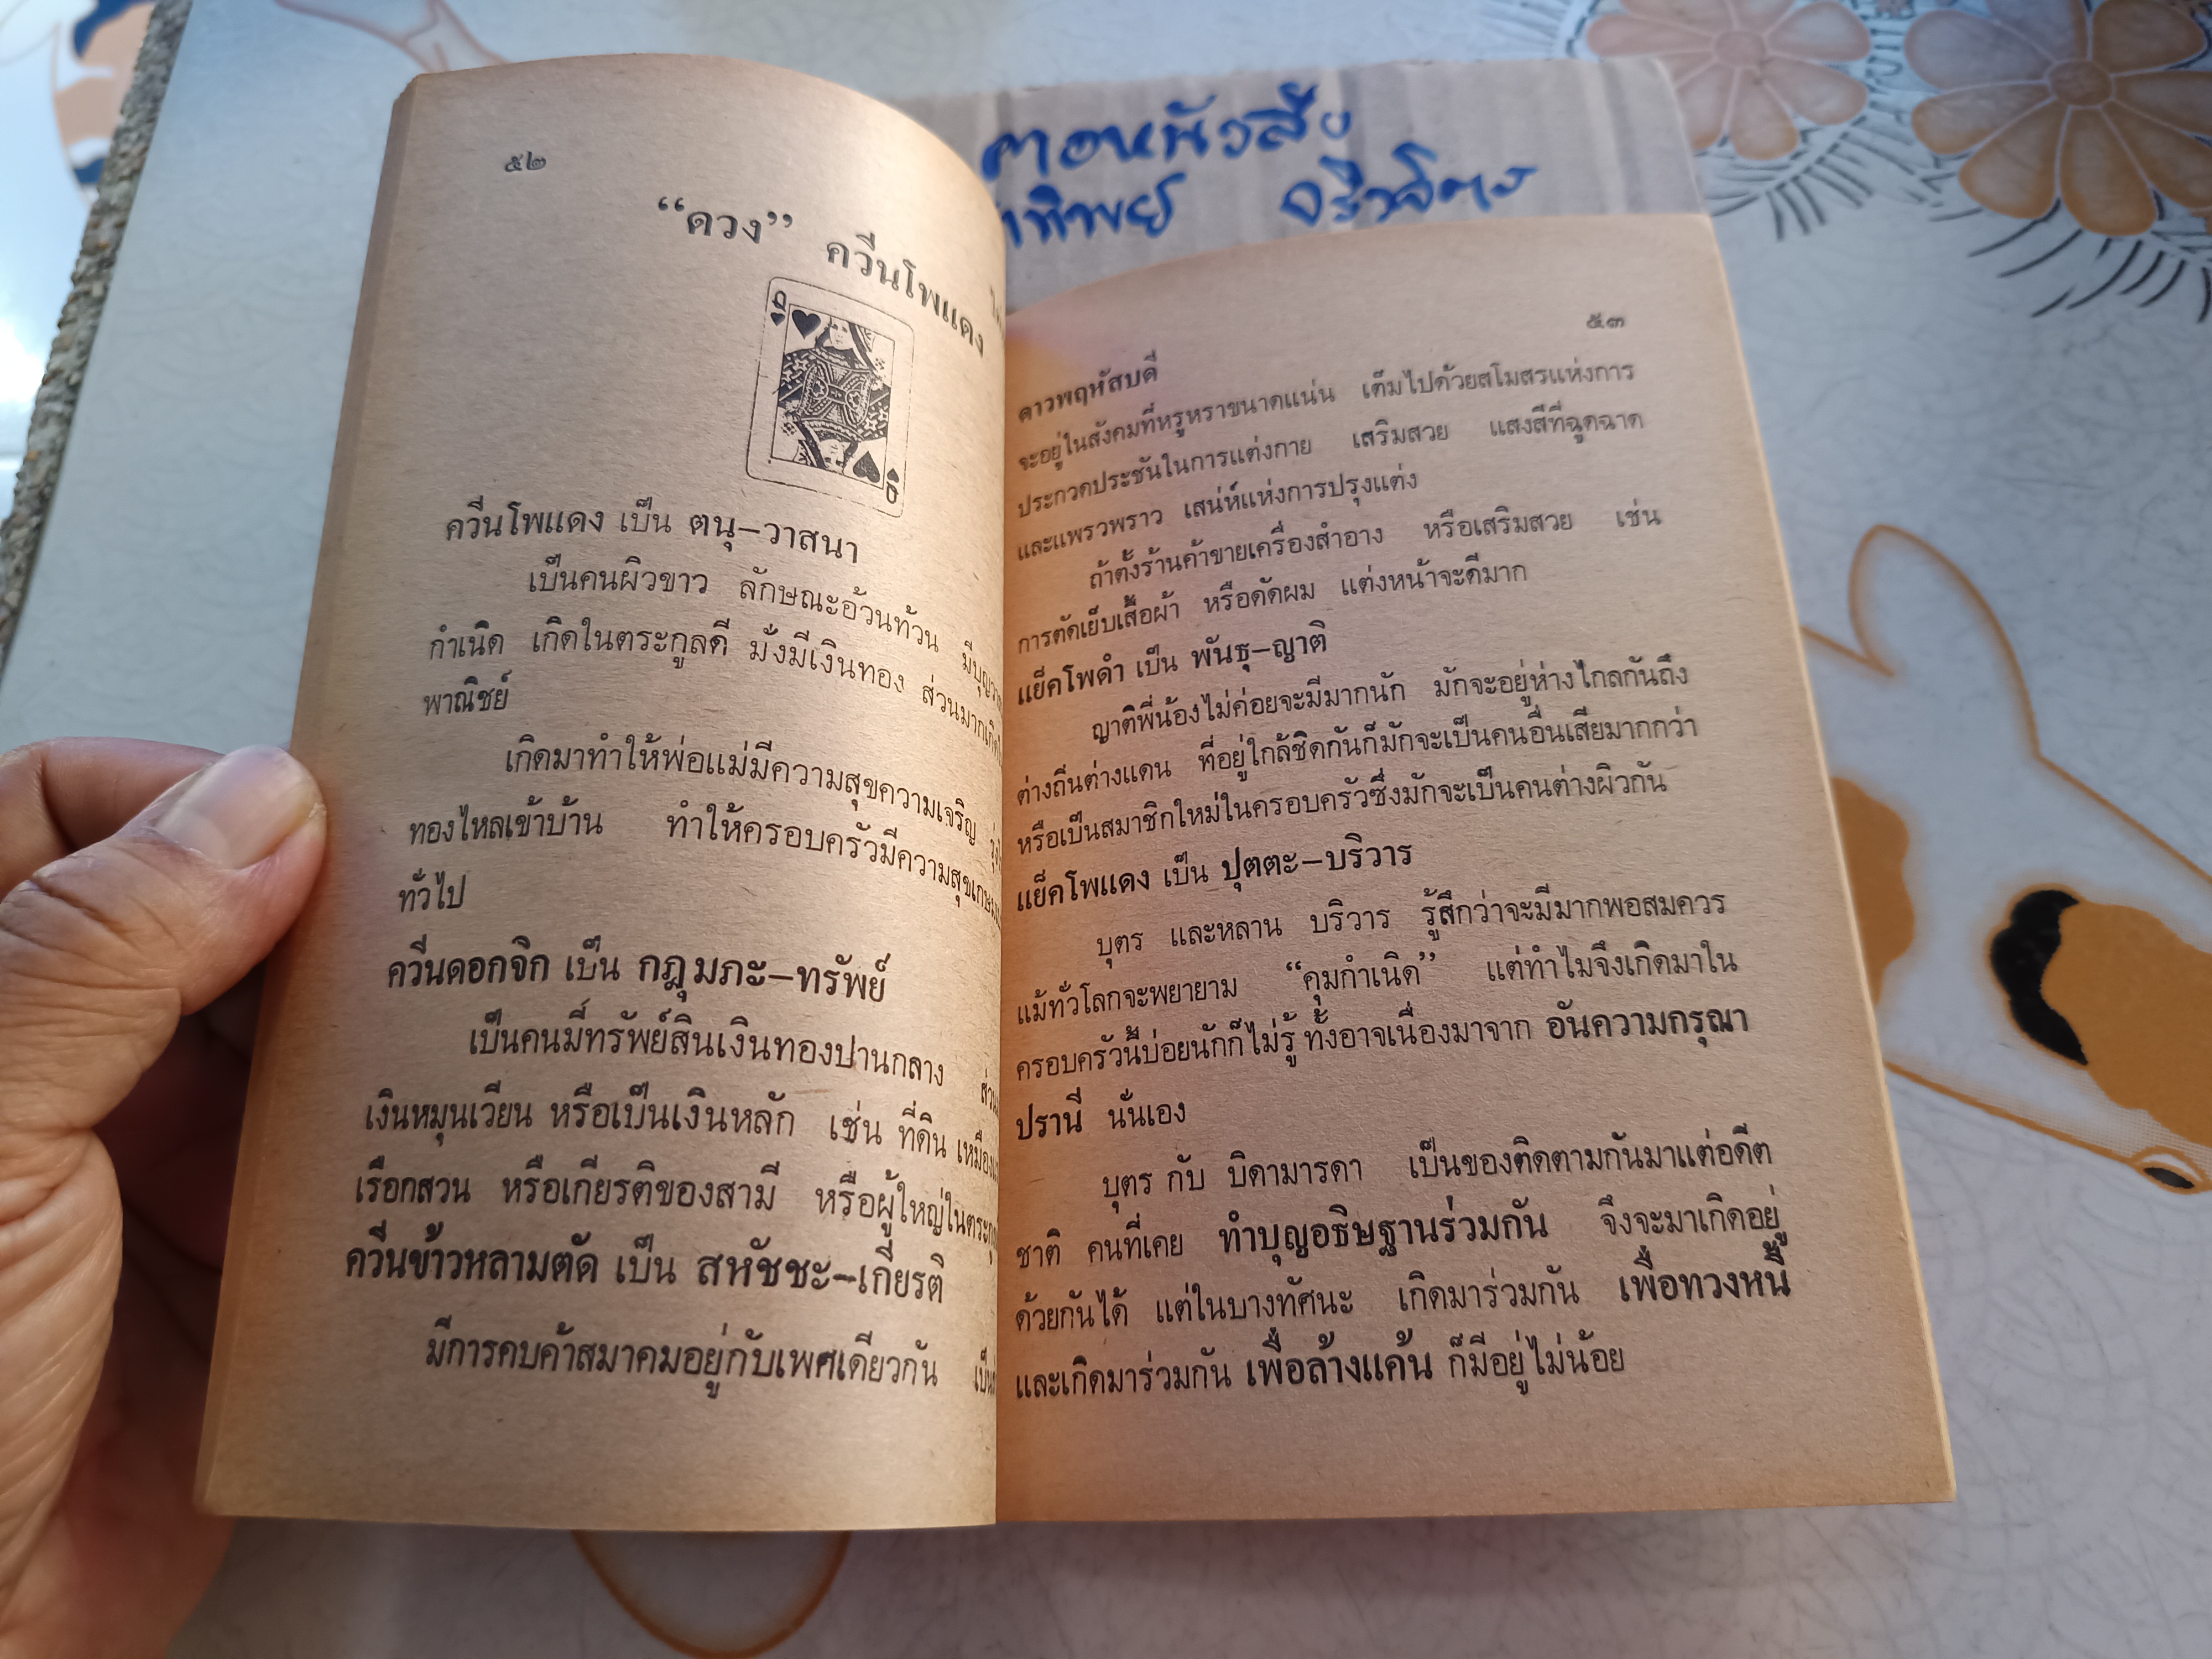 ๕๒
“ดวง” ควีนโพแดง
Q
Q
ควีนโพแดง เป็น ตนุ–วาสนา
เป็นคนผิวขาว ลักษณะอ้วนท้วน
กำเนิด เกิดในตระกูลดี มั่งมีเงินทอง ส่วนมาก
พาณิชย์
เกิดมาทำให้พ่อแม่มีความสุขความเจริญ
ทองไหลเข้าบ้าน ทำให้ครอบครัวมีความสุข
ทั่วไป
ควีนดอกจิก เป็น กฎุมภะ–ทรัพย์
เป็นคนมีทรัพย์สินเงินทองปานกลาง
เงินหมุนเวียน หรือเป็นเงินหลัก เช่น ที่ดิน
เรือกสวน หรือเกียรติของสามี หรือผู้ใหญ่ใน
ควีนข้าวหลามตัด เป็น สหัชชะ–เกียรติ
มีการคบค้าสมาคมอยู่กับเพศเดียวกัน
๕๓
ดาวพฤหัสบดี
จะอยู่ในสังคมที่หรูหราขนาดแน่น เต็มไปด้วยสโมสรแห่งการ
ประกวดประชันในการแต่งกาย เสริมสวย แสงสีที่ฉูดฉาด
และแพรวพราว เสน่ห์แห่งการปรุงแต่ง
ถ้าตั้งร้านค้าขายเครื่องสำอาง หรือเสริมสวย เช่น
การตัดเย็บเสื้อผ้า หรือดัดผม แต่งหน้าจะดีมาก
แย็คโพดำ เป็น พันธุ–ญาติ
ญาติพี่น้องไม่ค่อยจะมีมากนัก มักจะอยู่ห่างไกลกันถึง
ต่างถิ่นต่างแดน ที่อยู่ใกล้ชิดกันก็มักจะเป็นคนอื่นเสียมากกว่า
หรือเป็นสมาชิกใหม่ในครอบครัวซึ่งมักจะเป็นคนต่างผิวกัน
แย็คโพแดง เป็น ปุตตะ–บริวาร
บุตร และหลาน บริวาร รู้สึกว่าจะมีมากพอสมควร
แม้ทั่วโลกจะพยายาม “คุมกำเนิด” แต่ทำไมจึงเกิดมาใน
ครอบครัวนี้บ่อยนักก็ไม่รู้ ทั้งอาจเนื่องมาจาก อันความกรุณา
ปรานี นั่นเอง
บุตร กับ บิดามารดา เป็นของติดตามกันมาแต่อดีต
ชาติ คนที่เคย ทำบุญอธิษฐานร่วมกัน จึงจะมาเกิดอยู่
ด้วยกันได้ แต่ในบางทัศนะ เกิดมาร่วมกัน เพื่อทวงหนี้
และเกิดมาร่วมกัน เพื่อล้างแค้น ก็มีอยู่ไม่น้อย